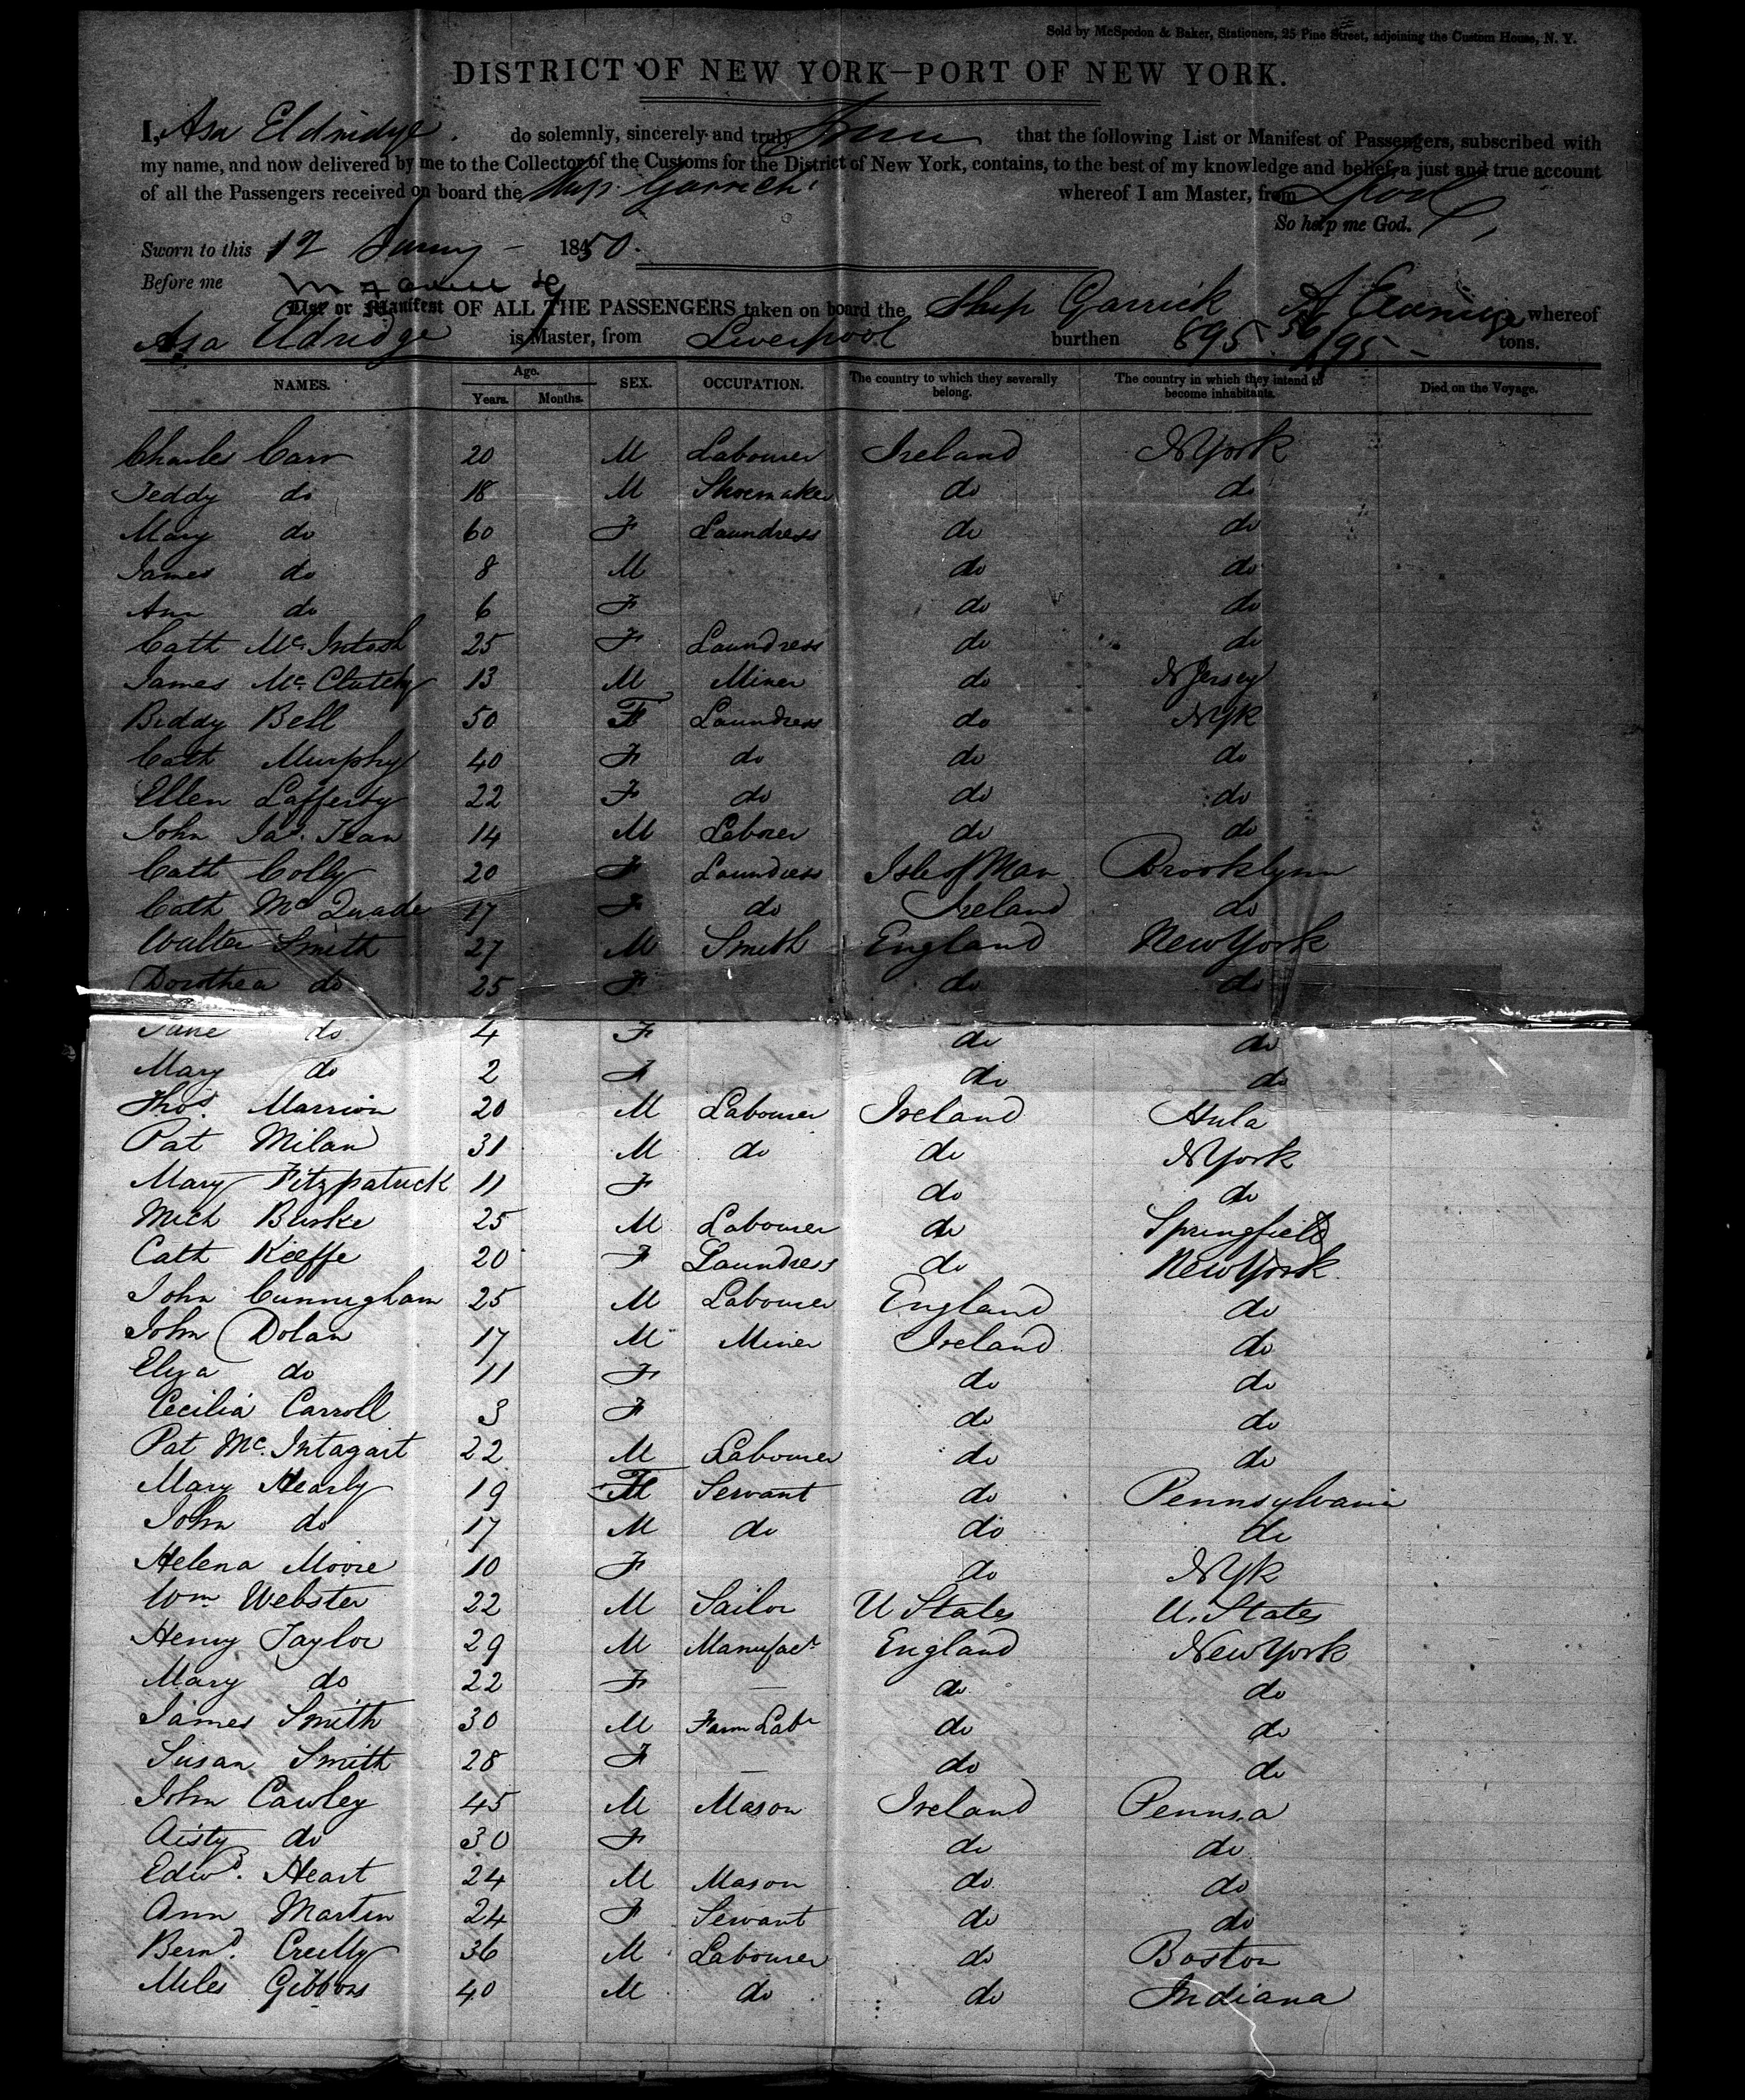 Sold by McSpedon & Baker, Stationers, 25 Pine Street, adjoining the Custom House, N. Y.
DISTRICT OF NEW YORK—PORT OF NEW YORK.
I, Asa Eldridge do solemnly, sincerely and truly that the following List or Manifest of Passengers, subscribed with
my name, and now delivered by me to the Collector of the Customs for the District of New York, contains, to the best of my knowledge and belief, a just and true account
of all the Passengers received on board the Ship Garrick whereof I am Master, from Lpool
So help me God.
Sworn to this 12 1850.
Before me
List or Manifest OF ALL THE PASSENGERS taken on board the Ship Garrick whereof
Asa Eldridge is Master, from Liverpool burthen 895 56/95 tons.
NAMES. Age. Years. Months. SEX. OCCUPATION. The country to which they severally belong. The country in which they intend to become inhabitants. Died on the Voyage.
Charles Carr 20 M Labourer Ireland N York
Teddy do 18 M Shoemaker do do
Mary do 60 F Laundress do do
James do 8 M do do
Ann do 6 F do do
Cath McIntosh 25 F Laundress do do
James McClutchy 13 M Miner do N Jersey
Biddy Bell 50 F Laundress do NYk
Cath Murphy 40 F do do do
Ellen Lafferty 22 F do do do
John Jas. Tean 14 M Laborer do do
Cath Colly 20 F Laundress Isle of Man Brooklynn
Cath McQuade 17 F do Ireland do
Walter Smith 27 M Smith England New York
Dorothea do 25 F do do
Jane do 4 F do do
Mary do 2 F do do
Thos. Marrion 20 M Labourer Ireland
Pat Milan 31 M do do N York
Mary Fitzpatrick 11 F do do
Mich Burke 25 M Labourer do Springfield
Cath Keeffe 20 F Laundress do New York
John Cunnigham 25 M Labourer England do
John Dolan 17 M Miner Ireland do
Eliza do 11 F do do
Cecilia Carroll 3 F do do
Pat Mc.Intagart 22 M Labourer do do
Mary Hearly 19 F Servant do Pennsylvania
John do 17 M do do do
Helena Moore 10 F do NYk
Wm Webster 22 M Sailor U States U. States
Henry Taylor 29 M Manufactr England New York
Mary do 22 F — do do
James Smith 30 M Farm Labr do do
Susan Smith 28 F — do do
John Cawley 45 M Mason Ireland Pennsa
Aisty do 30 F do do
Edwd. Heart 24 M Mason do do
Ann Martin 24 F Servant do do
Bernd. Creilly 36 M Labourer do Boston
Miles Gibbons 40 M do do Indiana